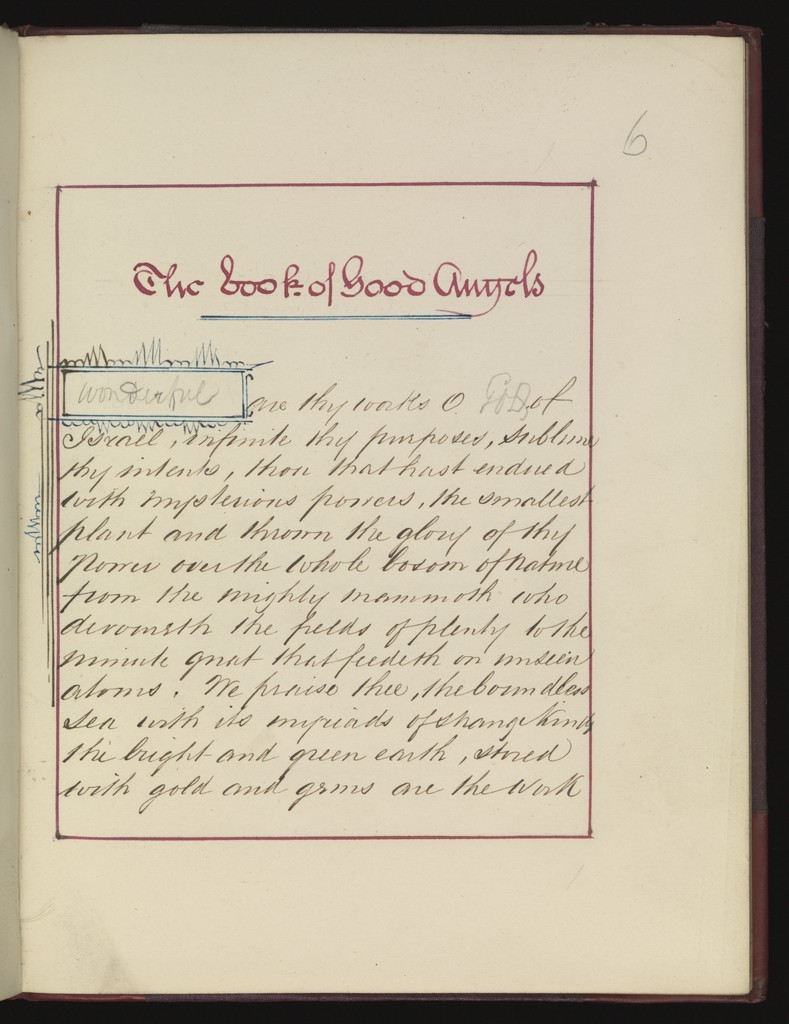 6
The book of Good Angels
Wonderful are thy works O GOD, of
Israel, infinite thy purposes, sublime
thy intents, thou that hast endued
with mysterious powers, the smallest
plant and thrown the glory of thy
Power over the whole bosom of nature
from the mighty mammoth who
devoureth the fields of plenty to the
minute gnat that feedeth on unseen
atoms. We praise thee, the boundless
Sea with its myriads of strange kinds
the bright and green earth, stored
with gold and gems are the work